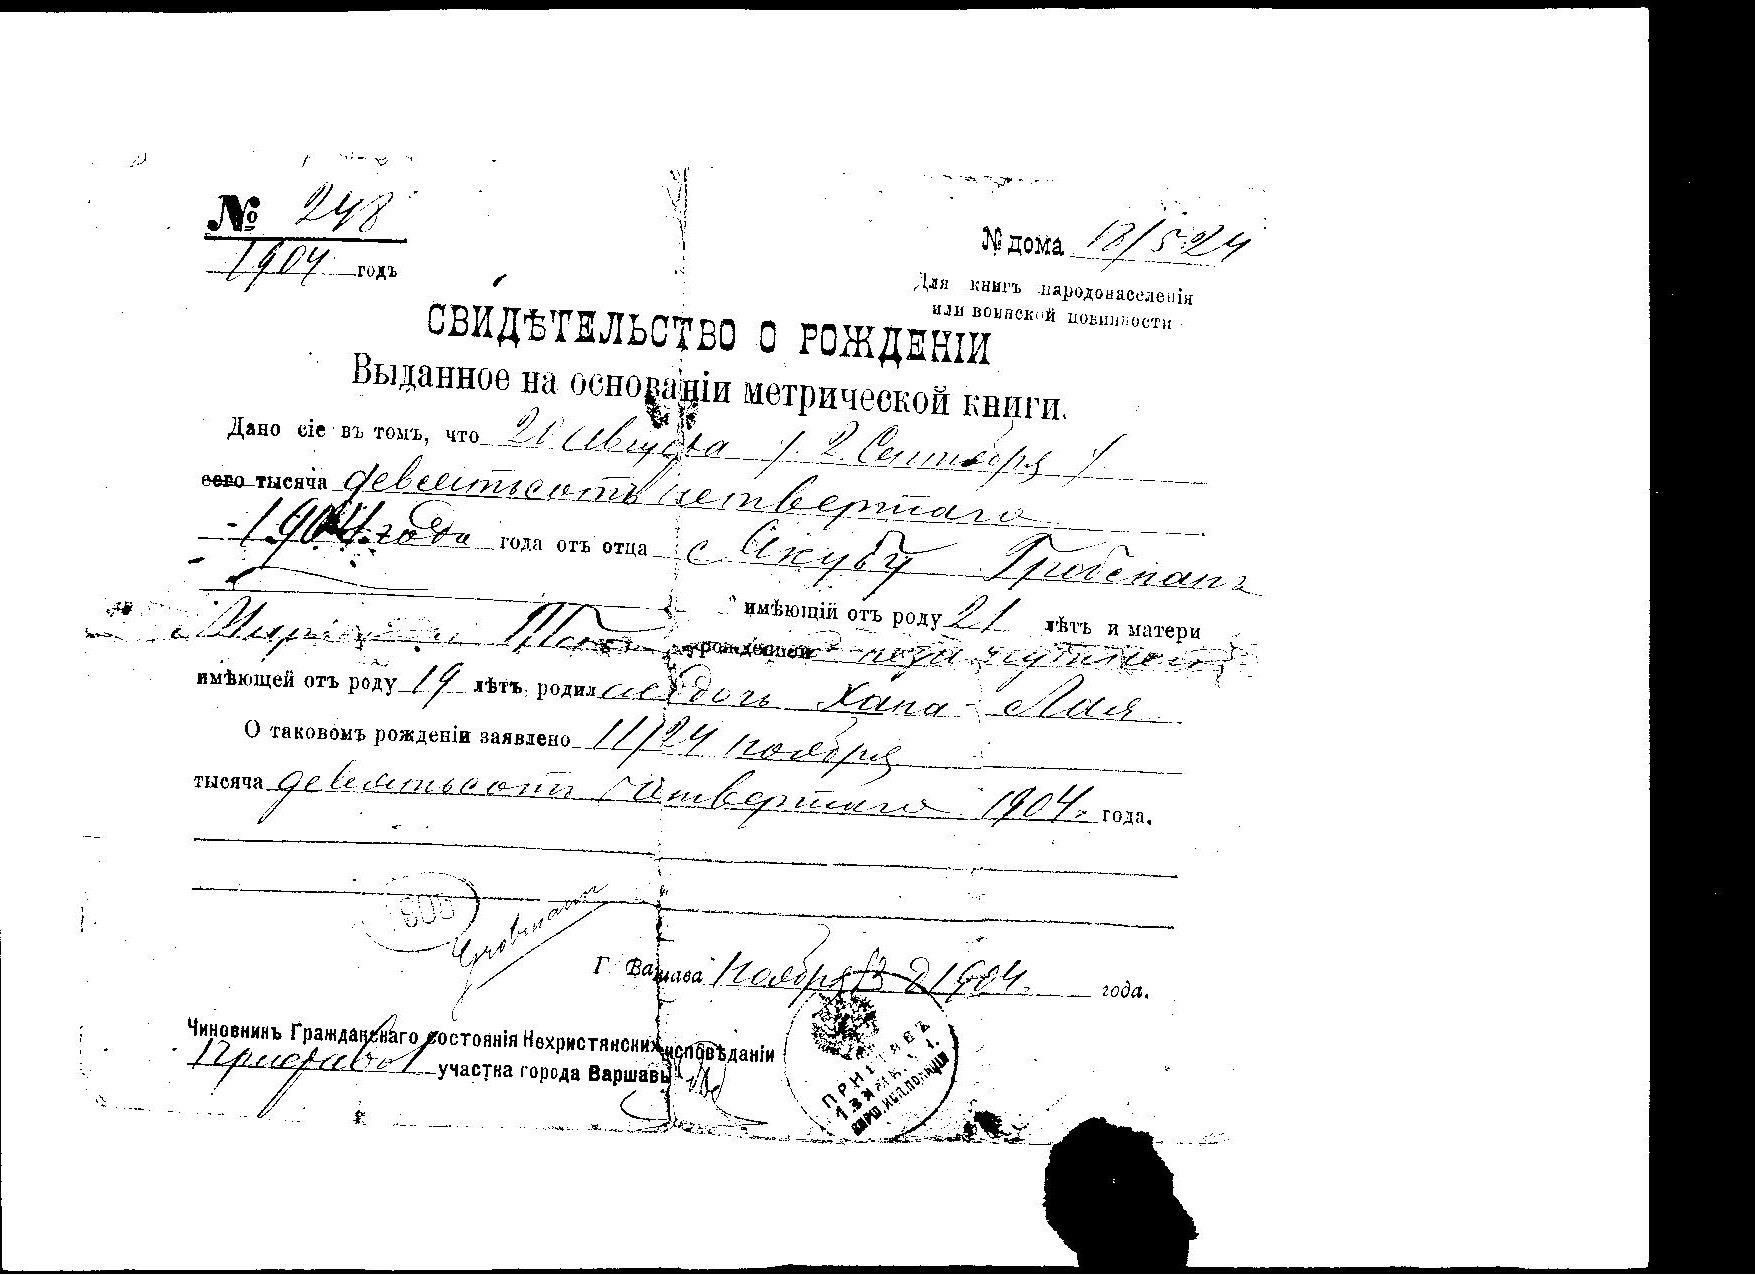 № 248
1904 годъ
№ дома 18/5224
Для книгъ народонаселенія
или воинской повинности
СВИДѢТЕЛЬСТВО О РОЖДЕНІИ
Выданное на основаніи метрической книги.
Дано сіе въ томъ, что 20 Августа / 2 Сентября /
сего тысяча девятьсотъ четвертаго
1904 года года отъ отца Якубу
имѣющій отъ роду 21 лѣтъ и матери
урожденной
имѣющей отъ роду 19 лѣтъ, родилась дочь Хана Лая
О таковомъ рожденіи заявлено 11/24 ноября
тысяча девятьсотъ четвертаго 1904 года.
Г Варшава Ноября 1904 года.
Чиновникъ Гражданскаго состоянія Нехристянскихъ исповѣданіи
Приставъ участка города Варшавы